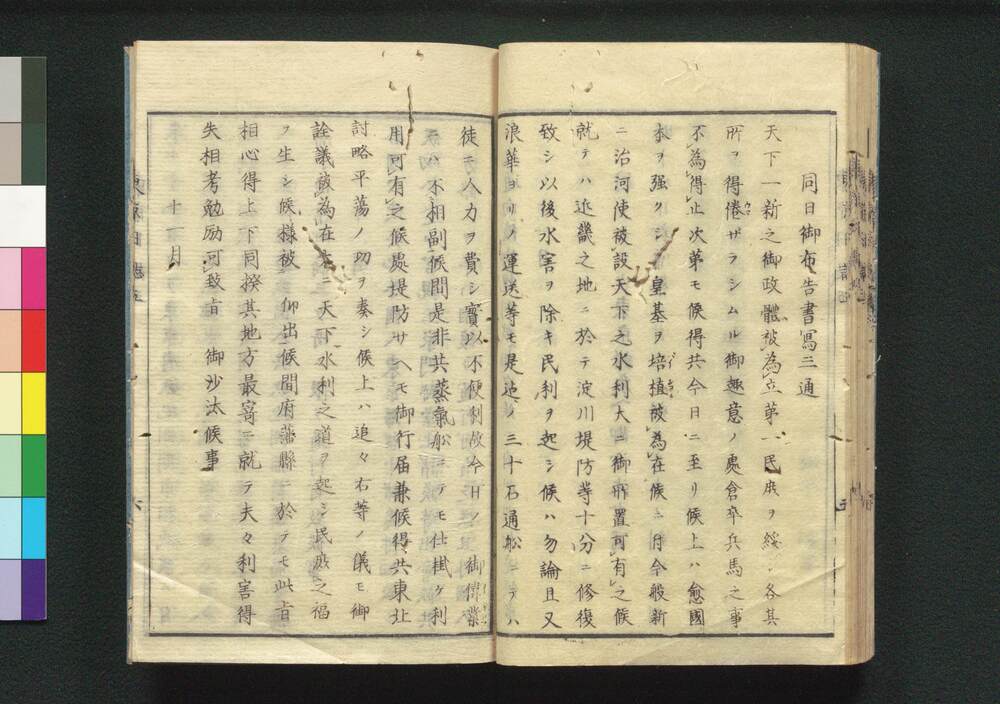 同日御布告書寫三通
天下一新之御政體被為立第一民庶ヲ綏シ各其
所ヲ得倦ザラシムル御趣意ノ處倉卒兵馬之事
不為得止次第モ候得共今日ニ至リ候上ハ愈國
本ヲ强クシ皇基ヲ培植被為在候ニ付今般新
ニ治河使被設天下之水利大ニ御所置可有之候
就テハ近畿之地ニ於テ淀川堤防等十分ニ修復
致シ以後水害ヲ除キ民利ヲ起シ候ハ勿論且又
浪華ヨリノ運送等モ是迄ノ三十石通船ニテハ
徒ニ人力ヲ費シ實以不便利故今日ノ御偉業
ニハ不相副候間是非共蒸氣船ニテモ仕掛ケ利
用可有之候處堤防サヘモ御行届兼候得共東北
討略平蕩ノ功ヲ奏シ候上ハ追々右等ノ儀モ御
詮議被為在 天下水利之道ヲ起シ民庶之福
ヲ生シ候様被 仰出候間府藩縣ニ於テモ此旨
相心得上下同揆其地方最寄ニ就テ夫々利害得
失相考勉励可致旨 御沙汰候事
十一月